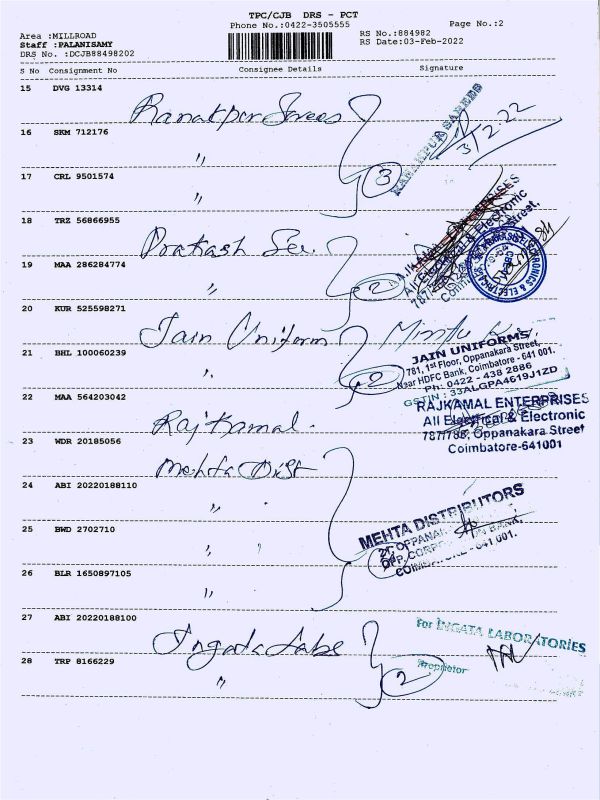 TPC/CJB DRS - PCT
Phone No.:0422-3505555
Page No.:2
Area :MILLROAD
RS No.:884982
Staff :PALANISAMY
RS Date:03-Feb-2022
DRS No. :DCJB88498202
S No Consignment No Consignee Details Signature
15 DVG 13314
Ranakpur Sarees
RANAKPUR SAREES
3/2.22
16 SKM 712176
"
17 CRL 9501574
"
3
18 TRZ 56866955
Prakash Ele.
All Electrical & Electronic
19 MAA 286284774
"
2
20 KUR 525598271
Jain Uniform
21 BHL 100060239
"
2
JAIN UNIFORMS
781, 1st Floor, Oppanakara Street,
Near HDFC Bank, Coimbatore - 641 001.
Ph: 0422 - 438 2886
GSTIN : 33ALGPA4619J1ZD
22 MAA 564203042
Rajkamal.
RAJKAMAL ENTERPRISES
All Electrical & Electronic
787/788, Oppanakara Street
Coimbatore-641001
23 WDR 20185056
Mehta Dist
24 ABI 20220188110
"
25 BWD 2702710
"
MEHTA DISTRIBUTORS
26 BLR 1650897105
"
27 ABI 20220188100
Ingata Labs
For INGATA LABORATORIES
28 TRP 8166229
"
2
Proprietor